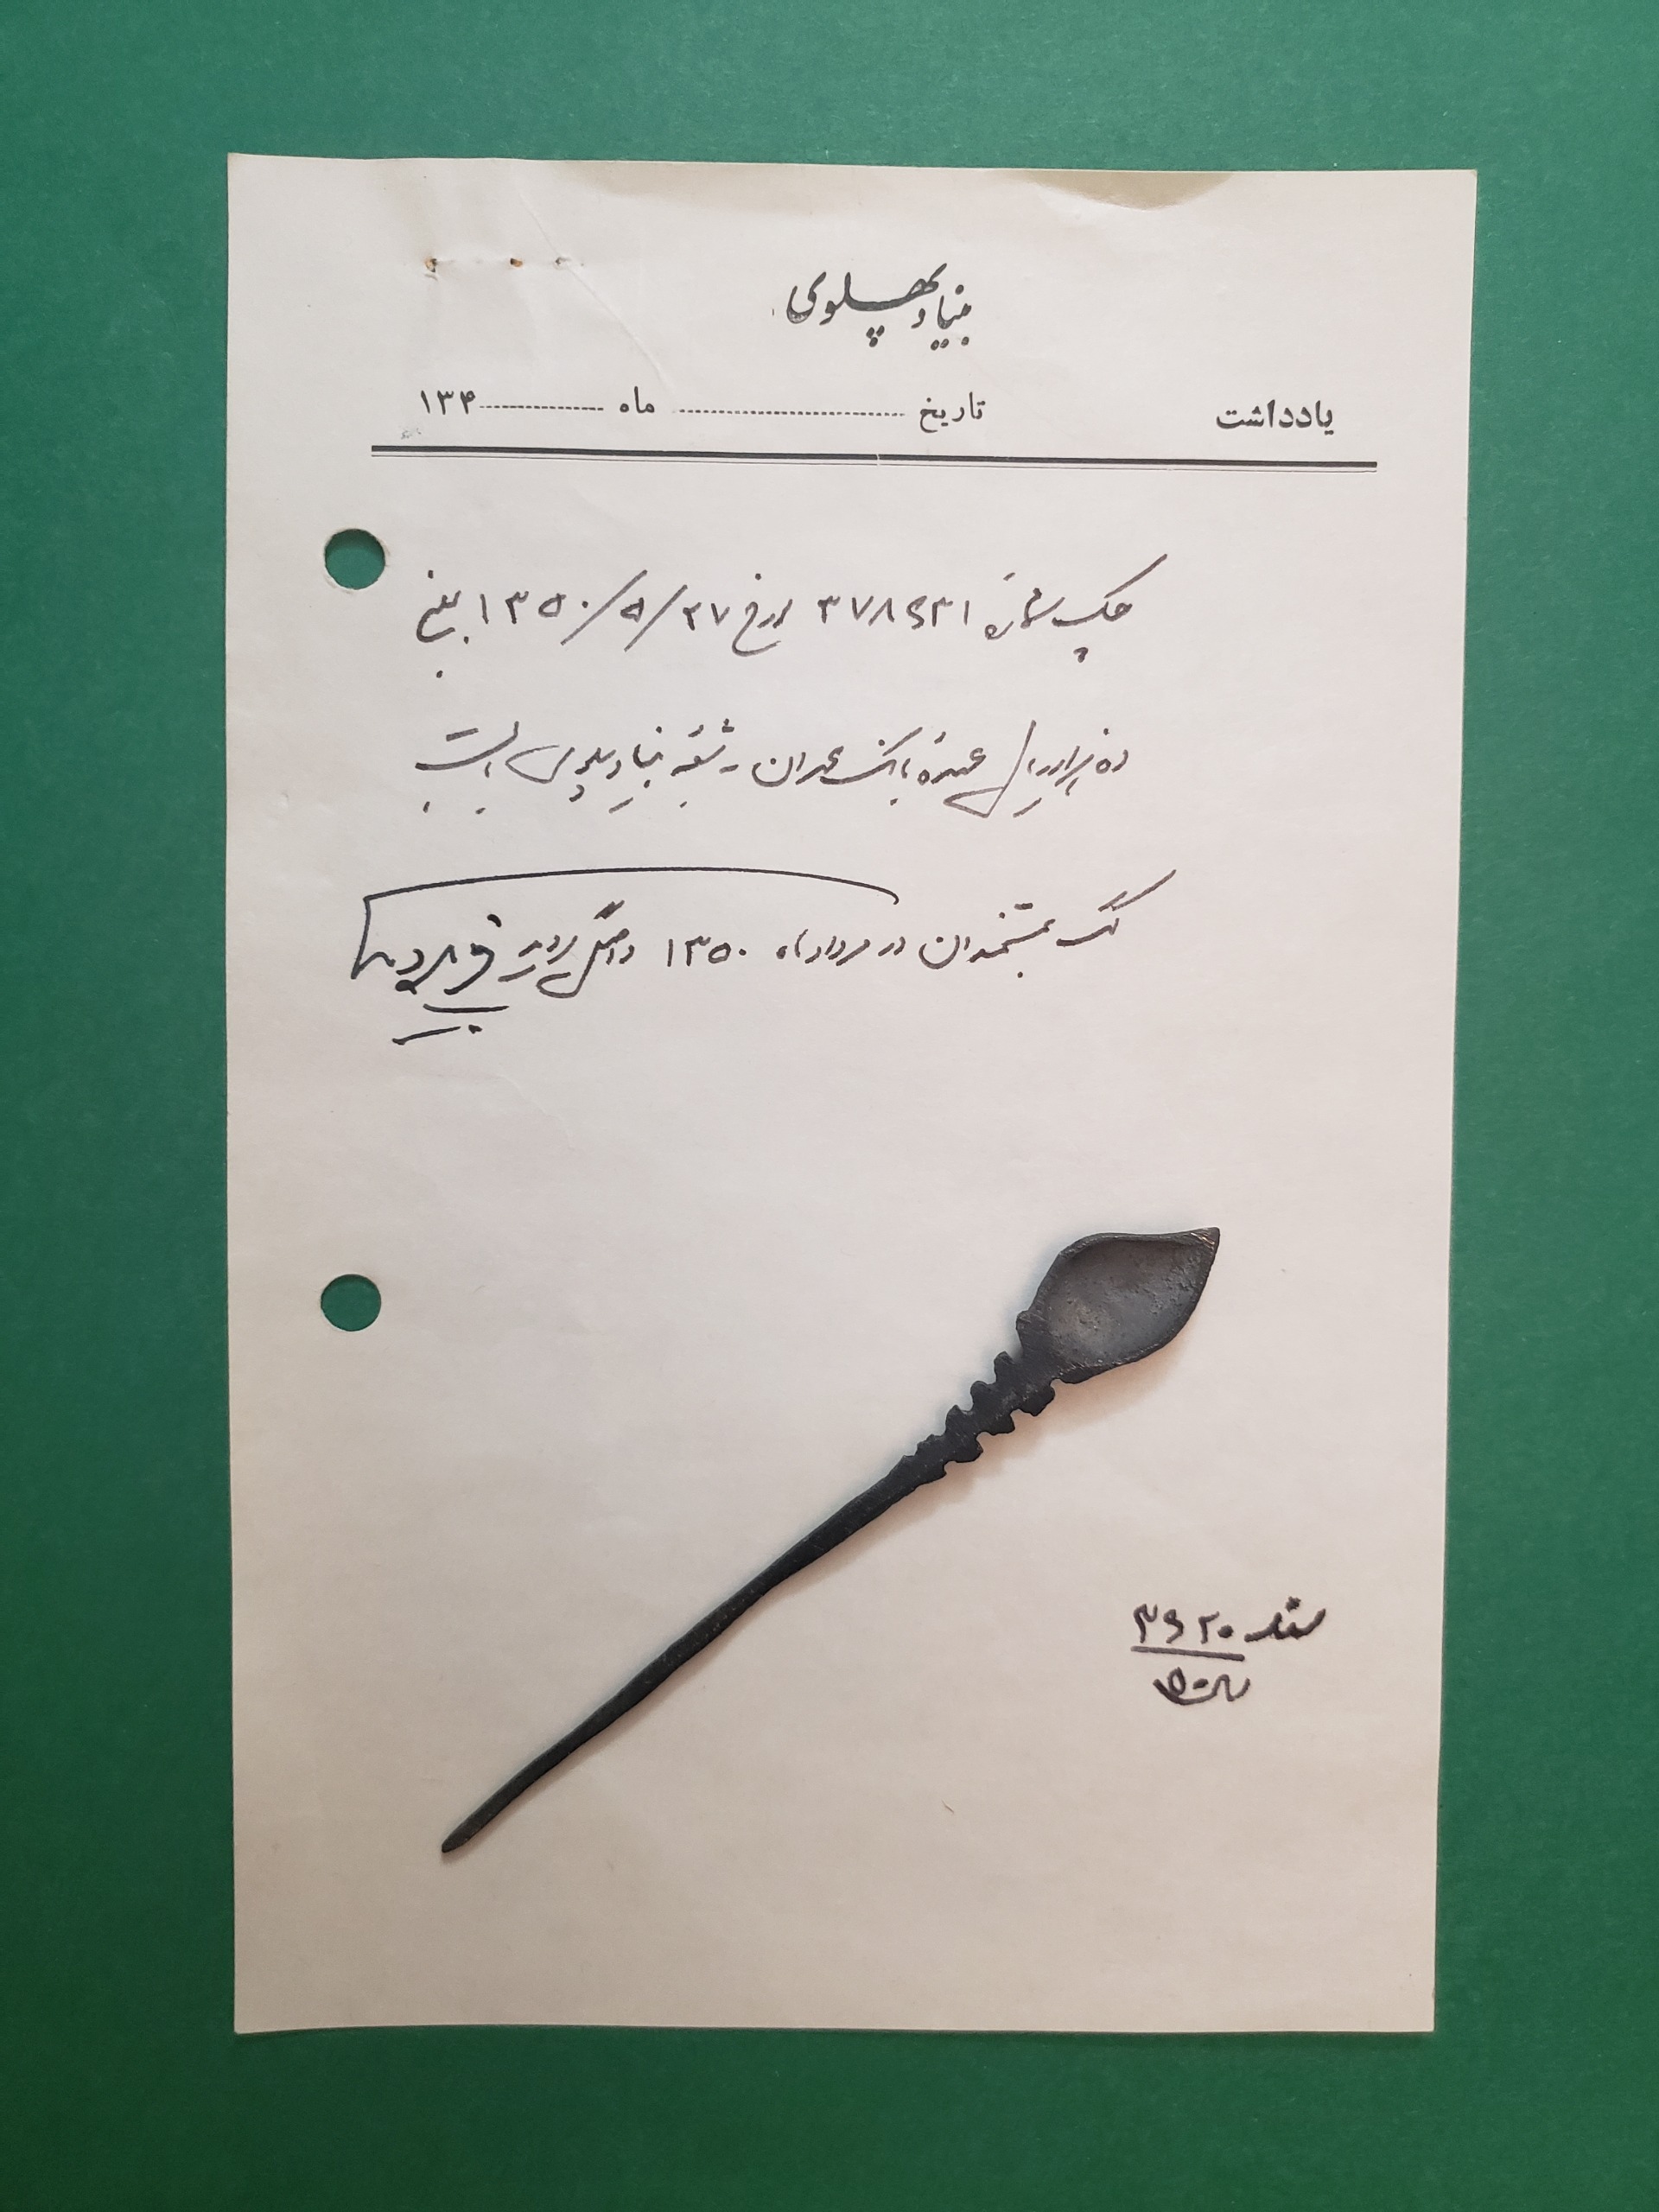 بنیاد پهلوی
یادداشت تاریخ ............ ماه ............ ۱۳۴
چک شماره ۳۷۸۶۳۱ مورخ ۱۳۵۰/۵/۲۷ بمبلغ
ده هزار ریال عهده بانک عمران - شعبه بنیاد پهلوی بابت
کمک بمستمندان در مرداد ماه ۱۳۵۰ واصل گردید
سند ۳۶۲۰